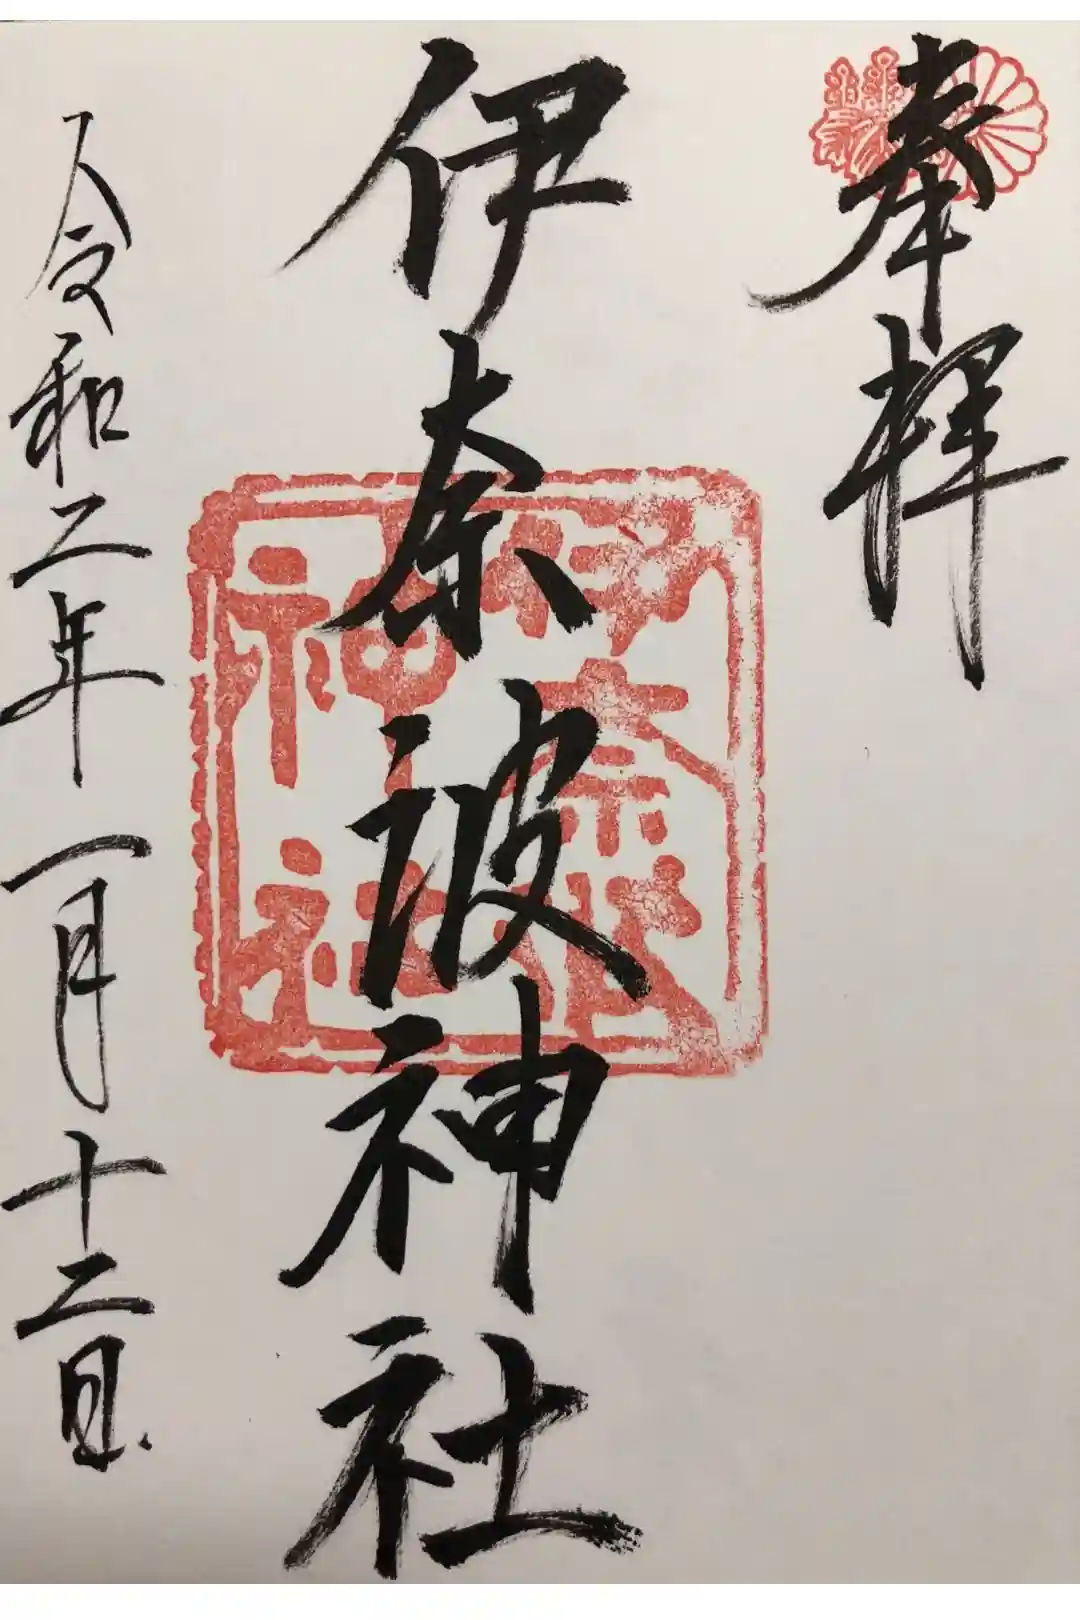 奉拝
伊奈波神社
伊奈波
神社
令和二年一月十二日